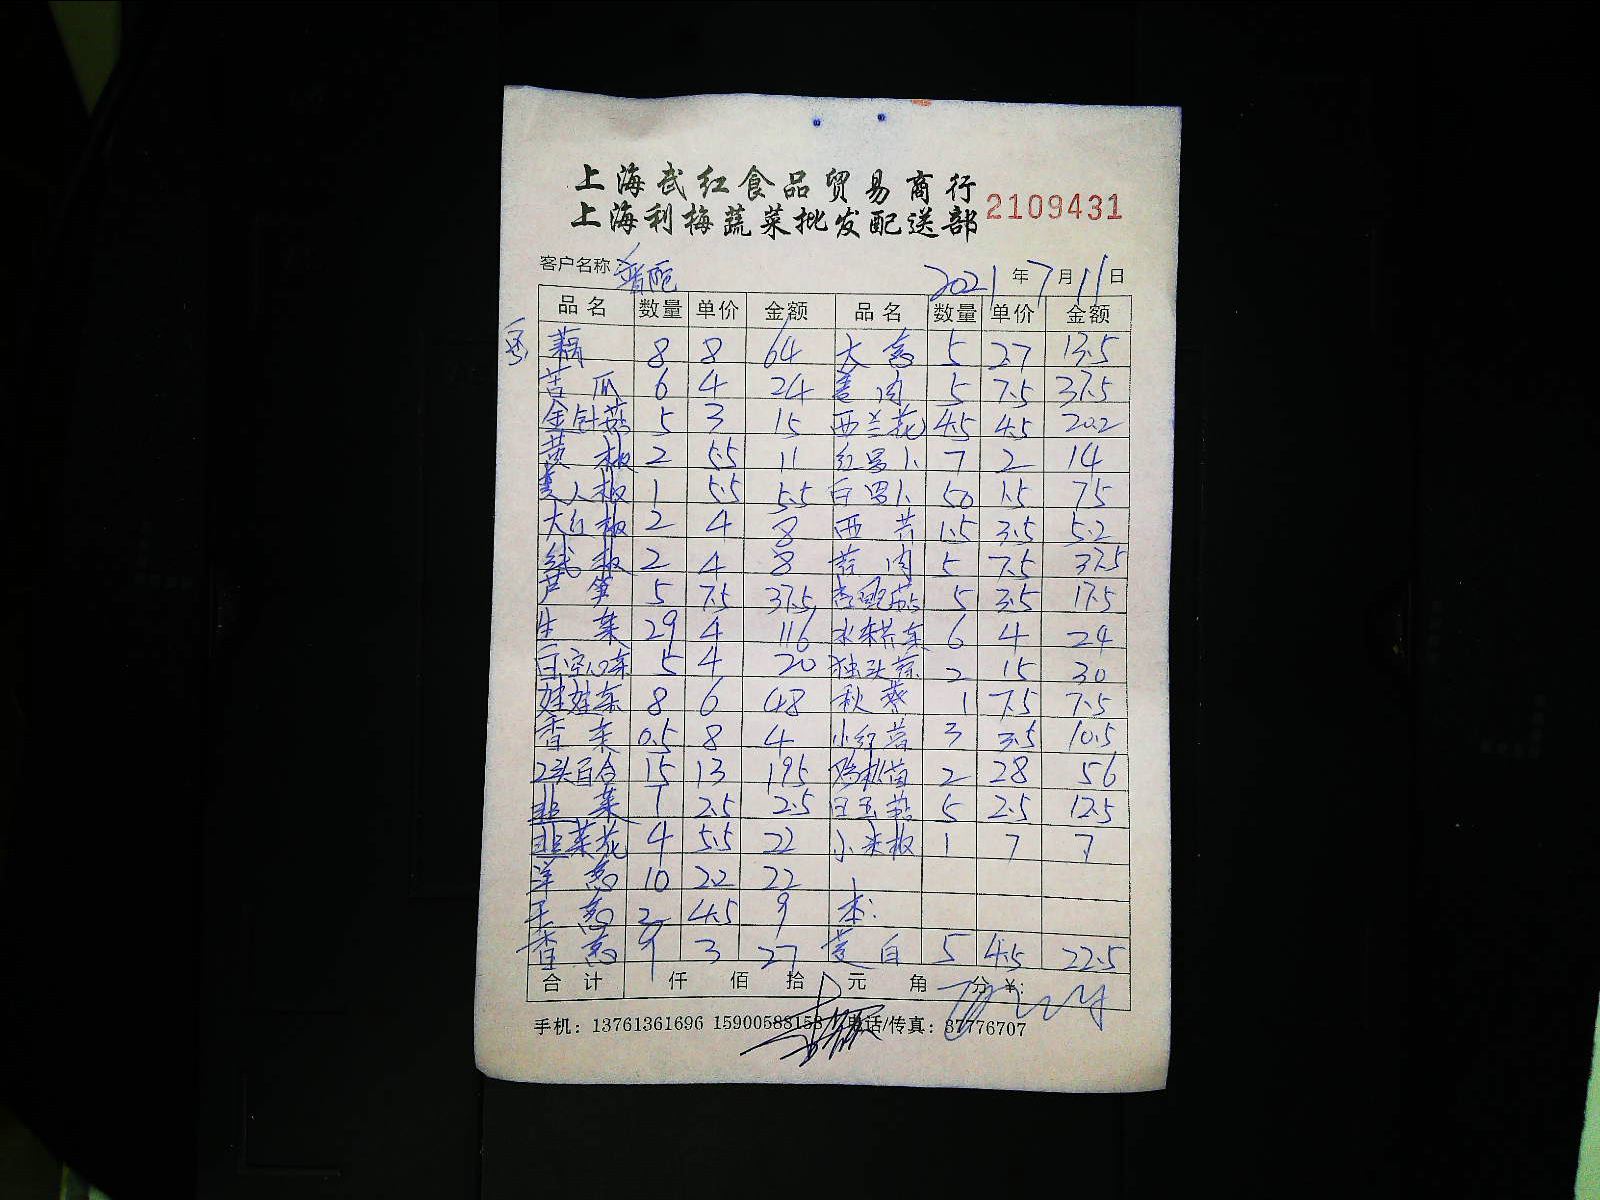 上海武红食品贸易商行
上海利梅蔬菜批发配送部 2109431
客户名称 2021年7月11日
品名 数量 单价 金额 品名 数量 单价 金额
藕 8 8 64 大葱 5 2.7 13.5
苦瓜 6 4 24 姜肉 5 7.5 37.5
金针菇 5 3 15 西兰花 4.5 4.5 20.2
黄椒 2 5.5 11 红罗卜 7 2 14
美人椒 1 5.5 5.5 白罗卜 50 1.5 75
大红椒 2 4 8 西芹 1.5 3.5 5.2
线椒 2 4 8 肉 5 7.5 37.5
芦笋 5 7.5 37.5 杏鲍菇 5 3.5 17.5
生菜 29 4 116 水果黄瓜 6 4 24
白空心菜 5 4 20 独头蒜 2 15 30
娃娃菜 8 6 48 秋葵 1 7.5 7.5
香菜 0.5 8 4 小红 3 3.5 10.5
2头百合 15 13 195 2 28 56
韭菜 1 2.5 2.5 白玉菇 5 2.5 12.5
韭菜花 4 5.5 22 小米椒 1 7 7
洋葱 10 2.2 22
葱 2 4.5 9 本:
香葱 9 3 27 茭白 5 4.5 22.5
合计 仟 佰 拾 元 角 分 ¥:
手机: 13761361696 15900588158 电话/传真: 37776707